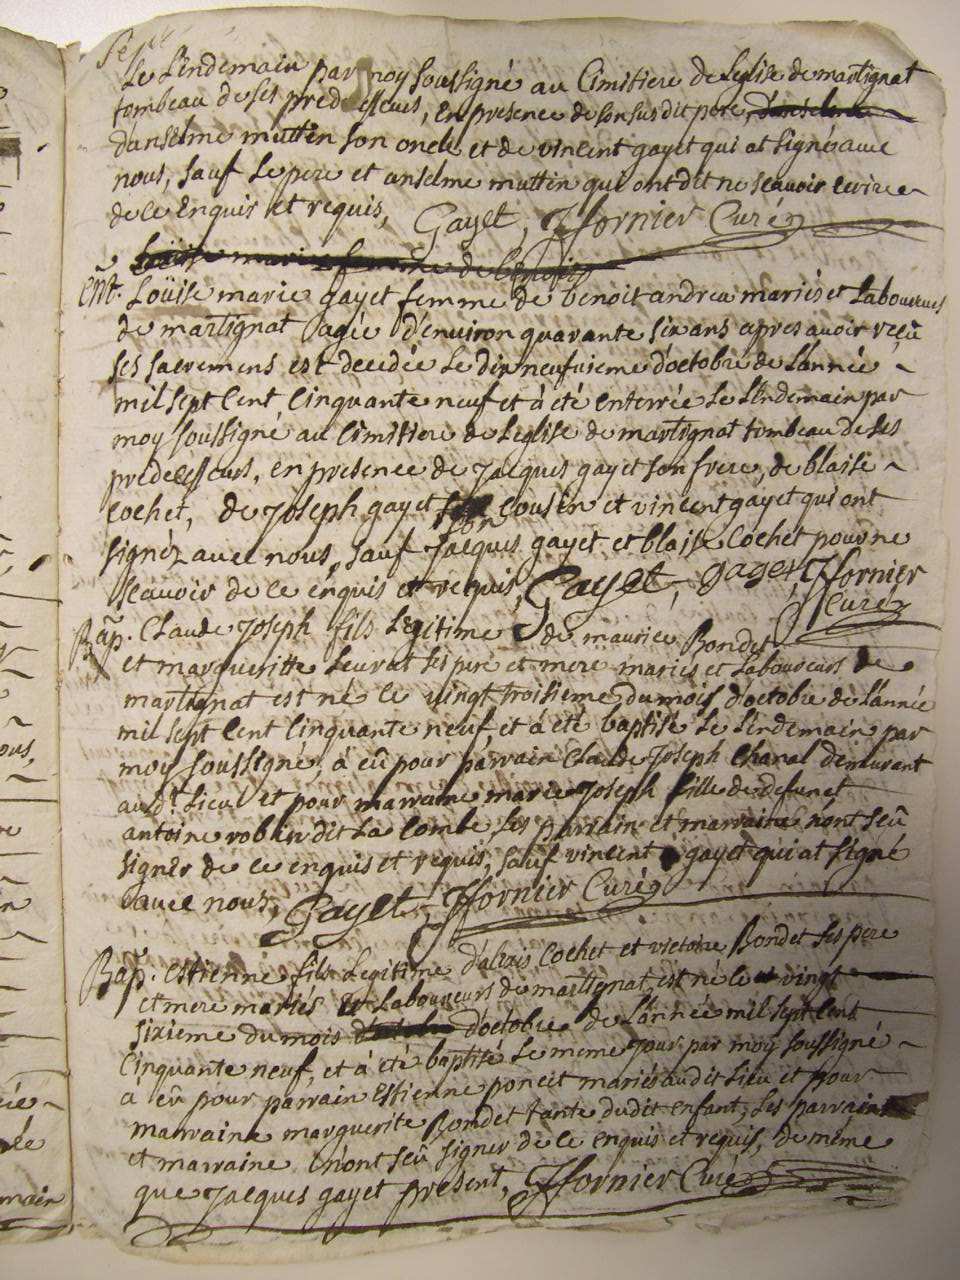 Le Lendemain par moy soussigné au Cimitiere de Leglise de martignat
tombeau de ses predecesseurs, en presence de son susdit pere,
danselme muttin son oncle et de vincent gayet qui at signé avec
nous, sauf Le pere et anselme muttin qui ont dit ne scavoir ecrire
de ce enquis et requis, Gayet, Ffornier Curé
Ent. Loüise marie gayet femme de benoit andrea mariés et Laboureurs
de martignat agée d'environ quarante six ans apres avoir reçû
ses sacremens est decedée Le dix neufvieme d'octobre de L'année
mil sept cent cinquante neuf et à été enterrée Le Lendemain par
moy soussigné au Cimitiere de Leglise de martignat tombeau de ses
predecesseurs, en presence de Jacques gayet son frere, de blaise
Cochet, de Joseph gayet son cousin et vincent gayet qui ont
signéz avec nous, sauf Jacques gayet et blaise Cochet pour ne
scavoir de ce enquis et requis, Gayet, gayet, Ffornier
Curé
Bap. Claude Joseph fils Legitime de maurice Bondet
et margueritte Leurat ses pere et mere mariés et Laboureurs de
martignat est né le vingt troisieme du mois d'octobre de L'année
mil sept cent cinquante neuf et à été baptisé Le Lendemain par
moy soussigné, à eû pour parrain Claude Joseph Chanal demurant
audt. Lieu et pour marraine marie Joseph fille de defunct
antoine robin dit La Combe Les parrain et marraine n'ont sçû
signer de ce enquis et requis, sauf vincent gayet qui at signé
avec nous, Gayet, Ffornier Curé
Bap. Estienne fils Legitime d'alexis Cochet et victoire Bondet ses pere
et mere mariés et Laboureurs de martignat, est né le vingt
sixieme du mois d'octobre de L'année mil sept cent
cinquante neuf, et à été baptisé Le meme Jour par moy soussigné
à eû pour parrain Estienne poncet mariés audit Lieu et pour
marraine marguerite Bondet tante dudit enfant, Les parrain
et marraine n'ont sçû signer de ce enquis et requis, de même
que Jacques gayet present, Ffornier Curé